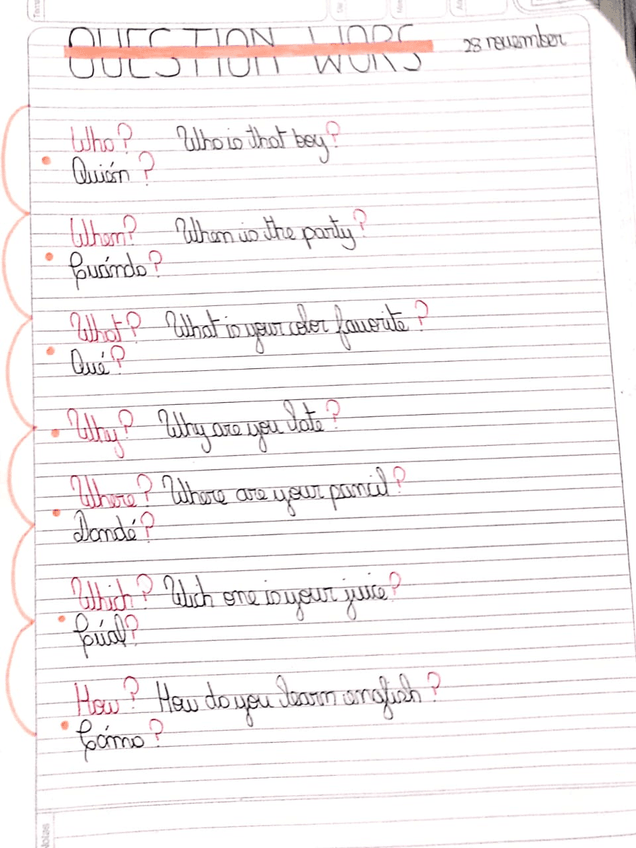 QUESTION WORS
28 november
Who? Who is that boy?
Quién?
When? When is the party?
Cuándo?
What? What is your color favorite?
Qué?
Why? Why are you late?
Where? Where are your pancil?
Dondé?
Which? Wich one is your juice?
Cúal?
How? How do you learn english?
Cómo?
Notas